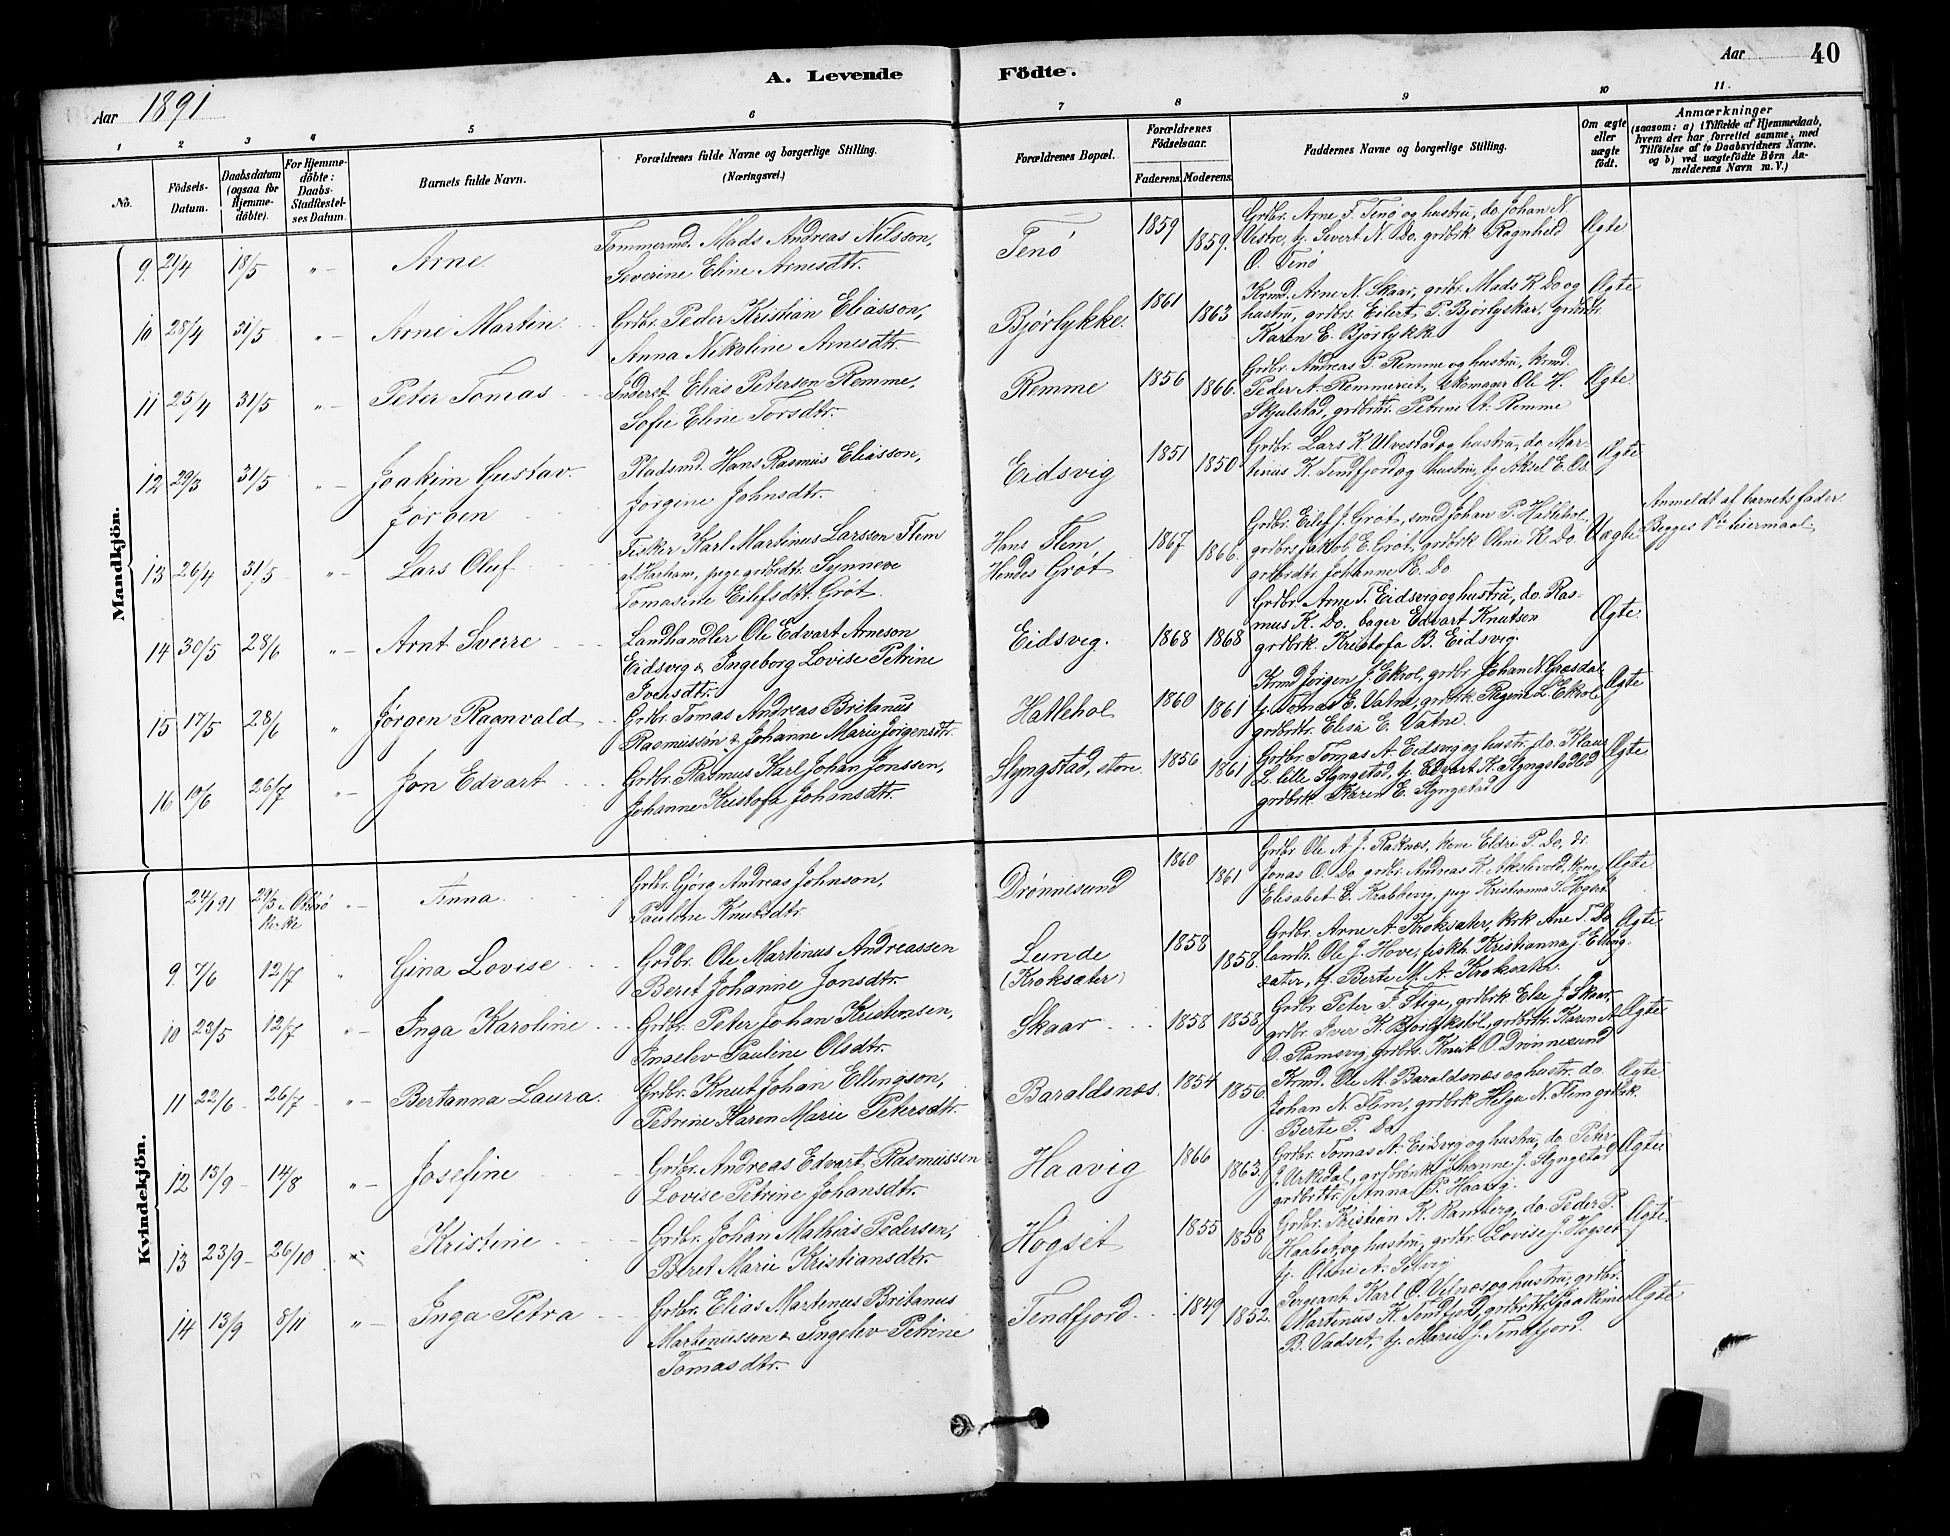 A. Levende Födte.
Aar 1891
Aar 40
1 2 3 4 5 6 7 8 9 10 11.
No.
Födsels-Datum.
Daabsdatum (ogsaa for Hjemmedöbte).
For Hjemmedöbte: Daabs-Stadfæstelses Datum.
Barnets fulde Navn.
Forældrenes fulde Navne og borgerlige Stilling. (Næringsvei.)
Forældrenes Bopæl.
Forældrenes Födselsaar.
Faderens. Moderens.
Faddernes Navne og borgerlige Stilling.
Om ægte eller uægte födt.
Anmærkninger
(saasom: a) i Tilfælde af Hjemmedaab, hvem der har forrettet samme, med Tilföielse af to Daabsvidners Navne. og b) ved uægtefödte Börn Anmelderens Navn m. V.)
Mandkjön.
9. 21/4 18/5 „ — Arne.
Tømmermd. Mads Andreas Nilsson,
Severine Eline Arnesdtr.
Tenö 1859 1859.
Grdbr. Arne T. Tenö og hustru, do. Johan N.
Vestre, tj. Sivert N. Do, grdbrk Ragnhild
O. Tenö
Ægte
10 28/4 31/5 „ — Arne Martin.
Grdbr. Peder Kristian Eliasson,
Anna Nikoline Arnesdtr.
Bjørlykke. 1861 1863
Krmd. Arne N. Skaar, grbr. Mads K. Do og
hustru, grdbrs. Eilert P. Bjørlykskar, Grdbrdtr.
Karen E. Bjørlykk
Ægte
11 25/4 31/5 „ — Peter Tomas
Inderst Elias Petersen Remme,
Sofie Eline Torsdtr.
Remme 1856 1866.
Grdbr. Andreas P. Remme og hustru, krmd.
Peder A. Remmereit, skomager Ole H.
Skjelstad, grdbrdtr. Petrine A. Remme
Ægte.
12 29/3 31/5 „ — Joakim Gustav Jørgen
Pladsmd. Hans Rasmus Eliasson,
Jørgine Johnsdtr.
Eidsvig 1851 1850
Grdbr. Lars K. Ulvestad og hustru, do. Mar-
tinus K. Tendfjord og hustru, tj. Aksel E. Do.
Ægte
13 26/4 31/5 „ — Lars Oluf
Fisker Karl Martinus Larsson Flem
af Harham, pige grdbrdtr. Synneve
Tomasine Eilefsdtr. Grøt.
Hans Flem
Hendes Grøt 1867 1866.
Grdbr. Eilef J. Grøt, smed Johan P. Hatlehol,
grdbrs. Jakob E. Grøt, grdbrk Oline Kl. Do.
grdbrdtr. Johanne E. Do
Uægte
Anmeldt af barnets fader
Begges 1ste leiermaal
14 30/5 28/6 „ — Arnt Sverre
Landhandler Ole Edvart Arneson
Eidsvig & Ingeborg Lovise Petrine
Iversdtr.
Eidsvig. 1868 1868
Grdbr. Arne T. Eidsvig og hustru, do. Ras-
mus K. Do. bager Edvart Knutsen
grdbrk. Kristofa B. Eidsvig.
Ægte.
15 17/5 28/6 „ Jørgen Ragnvald
Grdbr. Tomas Andreas Britanus
Rasmussøn & Johanne Marie Jørgensdtr.
Hatlehol 1860 1861
Krmd Jørgen J. Ekrol, grdbr Johan N. Græsdal
tj. Tomas E. Vatne, grdbrk Regine L. Ekrol
grdbrdtr. Elisa E. Vatne.
Ægte
16 19/6 26/7 „ — Jon Edvart
Grdbr. Rasmus Karl Johan Jonssen,
Johanne Kristofa Johansdtr.
Slyngstad, store. 1856 1861
Grdbr. Tomas A. Eidsvig og hustr. do. Klaus
L. Lille Slyngstad, tj. Edvart K. Slyngstadlid
grdbrk. Karen E. Slyngstad
Ægte
Kvindekjön.
24/1 91 29/3 i kirke „ — Anna.
Grdbr. Gjørg Andreas Johnson,
Pauline Knutsdtr.
Drønnesund 1860 1861
Grdbr. Ole A. J. Raknæs, kone Eldri P. Do, dr.
Jonas O. Do, grdbr. Andreas K. Akslevold, kone
Elisabet E. Krabbevig, pig Kristianna S.
Ægte
9. 7/6 12/7 „ Gina Lovise
Grdbr. Ole Martinus Andreassen
Beret Johanne Jonsdtr.
Lunde
(Kroksæter) 1858 1858.
Grdbr. Arne A. Kroksæter, krk Ane T. Do
landh. Ole J. Hove, fiskh. Kristianna J. Elling-
sæter, tj. Berte M. A. Kroksæter.
Ægte
10 23/5 12/7 „ — Inga Karoline
Grdbr. Peter Johan Kristensen,
Ingelev Pauline Olsdtr.
Skaar 1858 1858.
Grdbr. Peter T. Stige, grdbrk Else J. Skaar,
grdbr. Iver K. Bjørlykstøl, grdbrdtr. Karen A.
O. Ramsvig, grdbrs. Knut O. Drønnesund
Ægte
11 22/6 26/7 „ — Bertanna Laura.
Grdbr. Knut Johan Ellingson,
Petrine Karen Marie Petersdtr.
Baraldsnæs. 1854 1856.
Krmd. Ole M. Baraldsnæs og hustr. do.
Johan N. Flem, grdbrk Helga N. Flem grdbrk.
Berte P. Do
Ægte
12 13/9 14/8 „ — Josefine
Grdbr. Andreas Edvart Rasmussen
Lovise Petrine Johansdtr.
Haavig 1866 1863.
Grdbr. Tomas A. Eidsvig og hustru, do. Peter
J. Urkedal, grdbrenk. Johanne J. Slyngstad
grdbrdtr. Anna P. Haavig.
Ægte
13 23/9 26/10 Kristine
Grdbr. Johan Mathias Pedersen,
Beret Marie Kristiansdtr.
Hogset 1855 1858
Grdbr. Kristian K. Ramberg, do. Peder P.
Haabet og hustru, grdbr. Lovise J. Hogset
tj. Oline A. Selvig
Ægte.
14 13/9 8/11 „ — Inga Petra
Grdbr. Elias Martinus Britanus
Martinusson & Ingelev Petrine
Tomasdtr.
Tendfjord. 1849 1852.
Sergeant Karl O. Velnæs og hustru, grdbr.
Martinus K. Tendfjord, grdbrdtr. Joakime
B. Vadset, tj. Marie J. Tendfjord.
Ægte